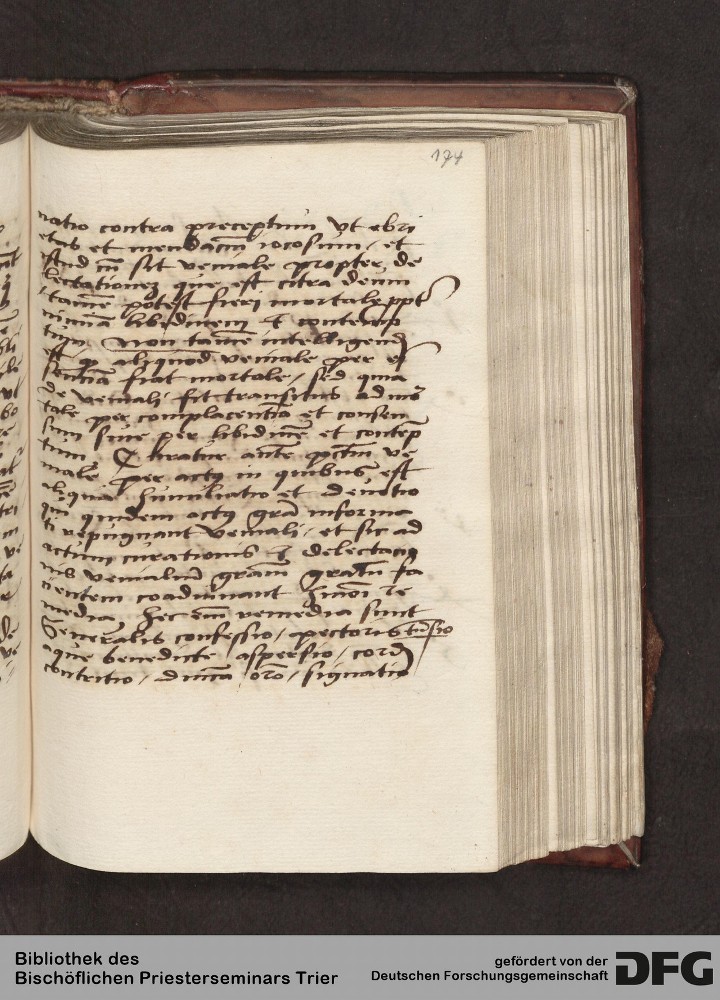 174
natio contra preceptum ut ebri
etas et mendaciu iocosum / et
istud cu sit veniale propter de
lectationez que est citra deum
tame potest fieri mortale ppt
nimia libidinem contemp
tum Non tame intelligend
est q aliquod veniale per
fiat mortale / sed quia
de veniali fit transitus ad mor
tale per complacentia et consen
sum sive per libidine et contep
tum curatur ante pctm ve
niale per actus in quibus est
aliqua humiliatio et devotio
qui quidem actus gra informa
ti repugnant veniali / et sic ad
actum curationis delectatio
nis venialiu gram gratu fa
cientem coadiuvant re
media hec em remedia sunt
Generalis confessio / pectoris tusio
aque benedicte aspersio / cord
contritio / divina oro / signatio
Bibliothek des
Bischöflichen Priesterseminars Trier
gefördert von der
Deutschen Forschungsgemeinschaft
DFG